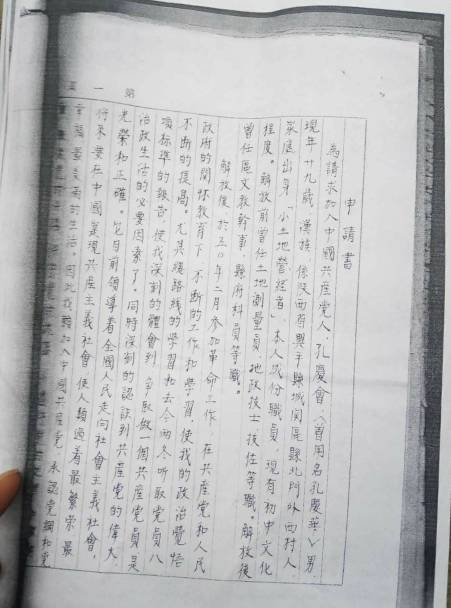 申請書
為請求加入中國共產党人,孔慶會,(曾用名孔慶華)男,
現年廿九歲,漢族,係陝西省興平縣城関區縣北門外西村人,
家庭出身「小土地營經者」,本人成份職員,現有初中文化
程度。解放前曾任土地測量員,地政技士,技佐等職。解放後
曾任區文教幹事,縣府科員等職。
解放後於五〇年二月參加革命工作,在共產党和人民
政府的関怀教育下,不断的工作和學習,使我的政治覺悟
不断的提高。尤其總路線的學習和去今两冬听取党員八
項标準的報告,使我深刻的體會到,争取做一個共產党員是
治政生活的必要因素了。同時深刻的認识到共產党的偉大、
光榮和正確。它目前領導着全國人民走向社會主義社會,
将來要在中國实現共產主義社會,使人類過着最繁荣、最
幸福、最美滿的生活。因此我願加入中國共產党,承認党綱和党
第一頁